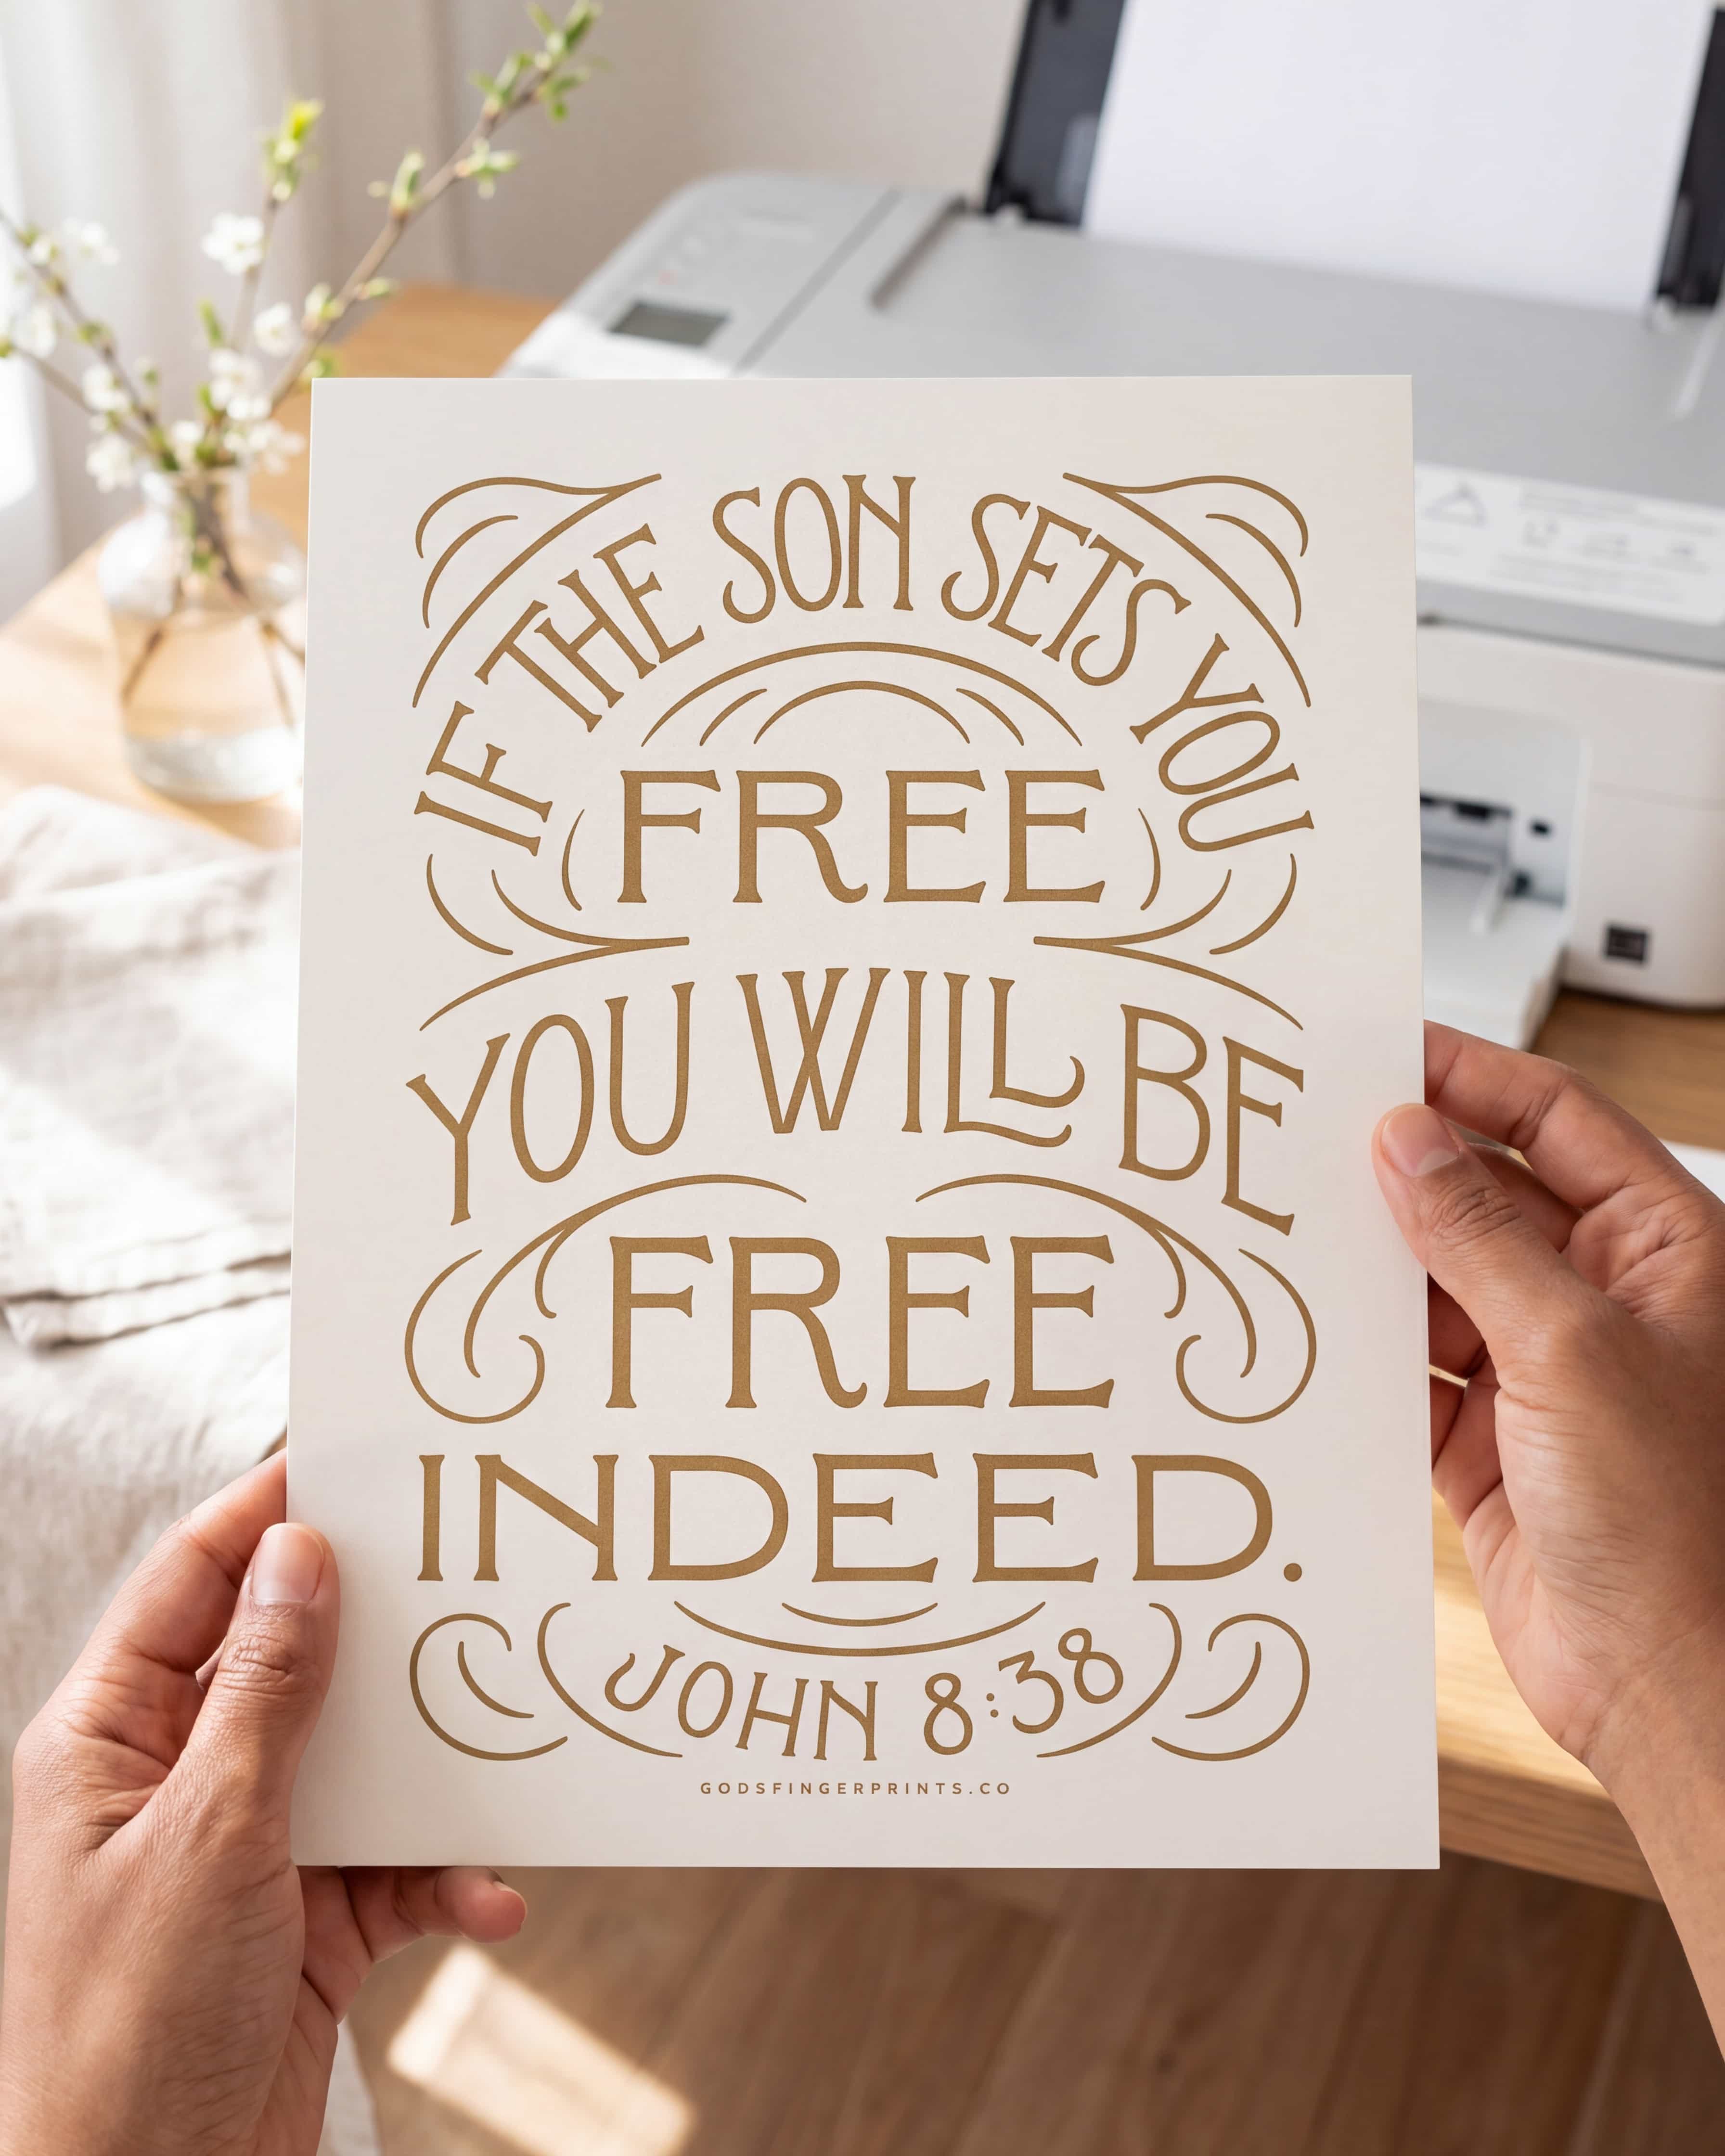 IF THE SON SETS YOU
FREE
YOU WILL BE
FREE
INDEED.
JOHN 8:38
GODSFINGERPRINTS.CO